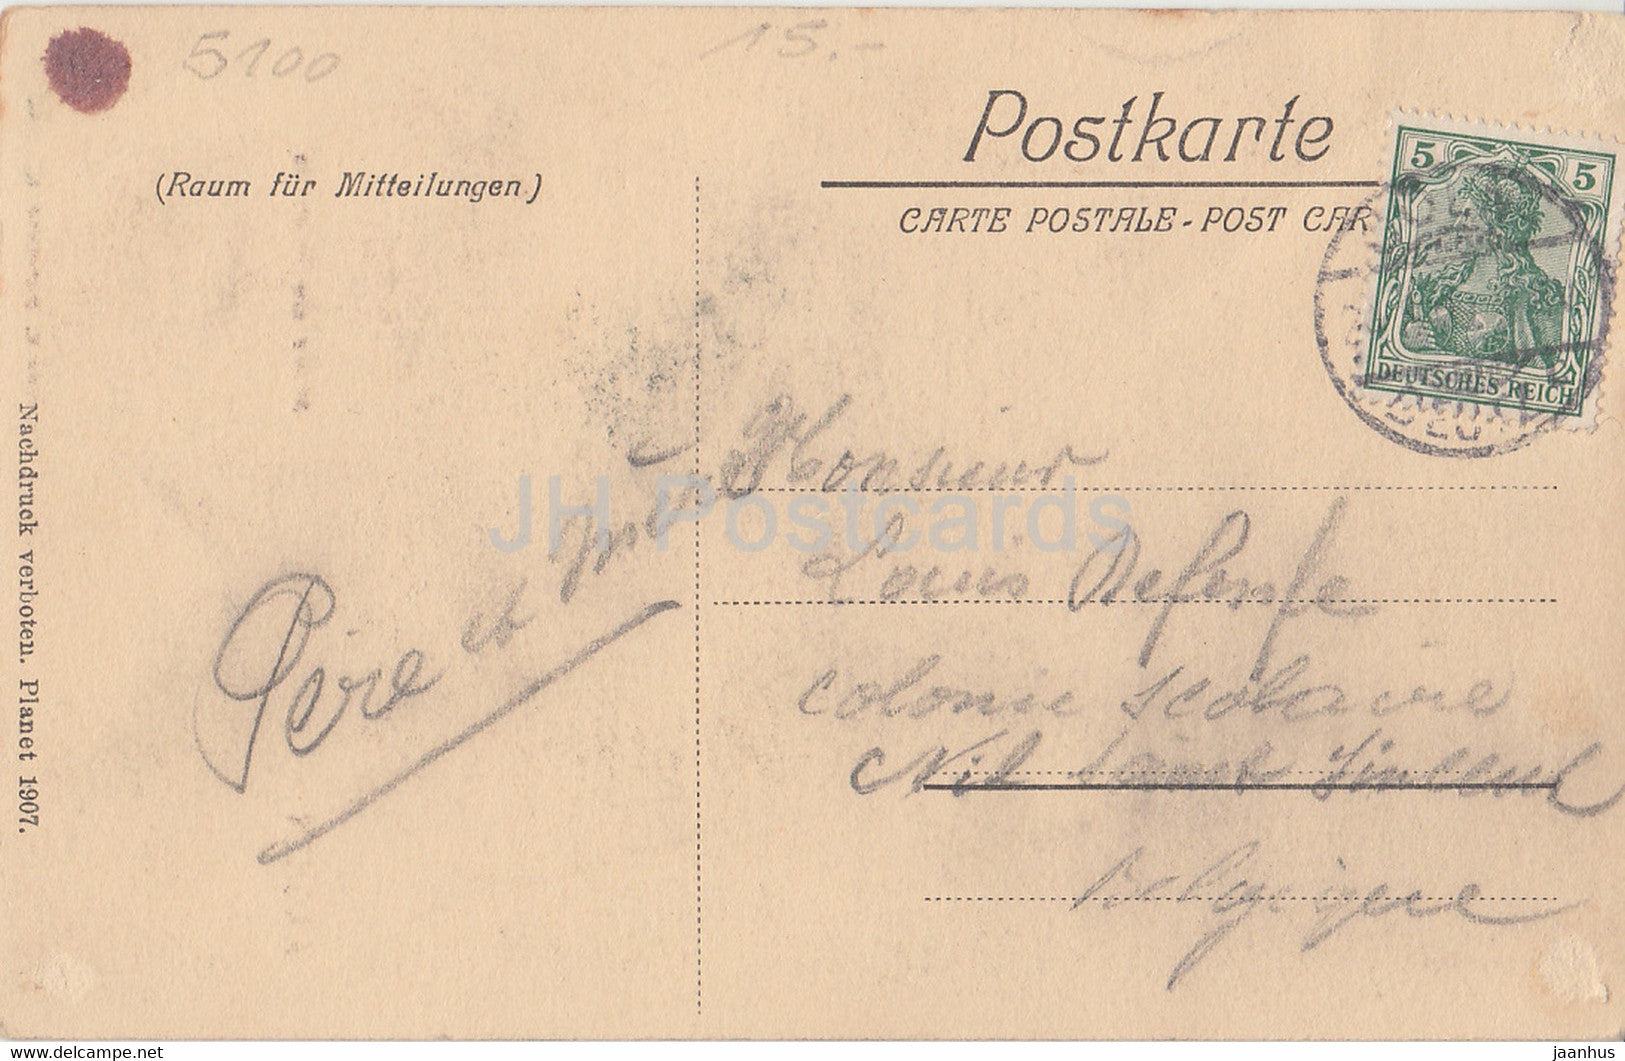 5100
15.-
Postkarte
(Raum für Mitteilungen.)
CARTE POSTALE - POST CAR
5 5
DEUTSCHES REICH
Nachdruck verboten. Planet 1907.
Père et
Monsieur
Louis
colonie scolaire
Nil Saint Vincent
Belgique
JH Postcards
www.delcampe.net
jaanhus